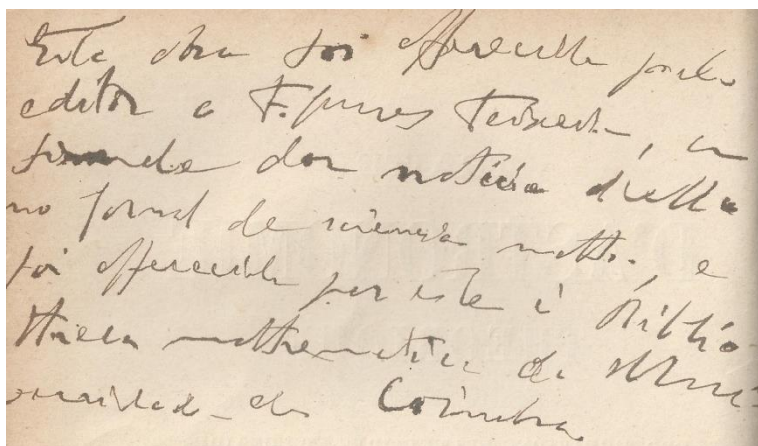 Esta obra foi offerecida pelo
editor a F. Gomes Teixeira, a
fim de dar noticia d'ella
no Jornal de sciencias math., e
foi offerecida por este á Biblio-
theca mathematica da Uni-
versidade de Coimbra.